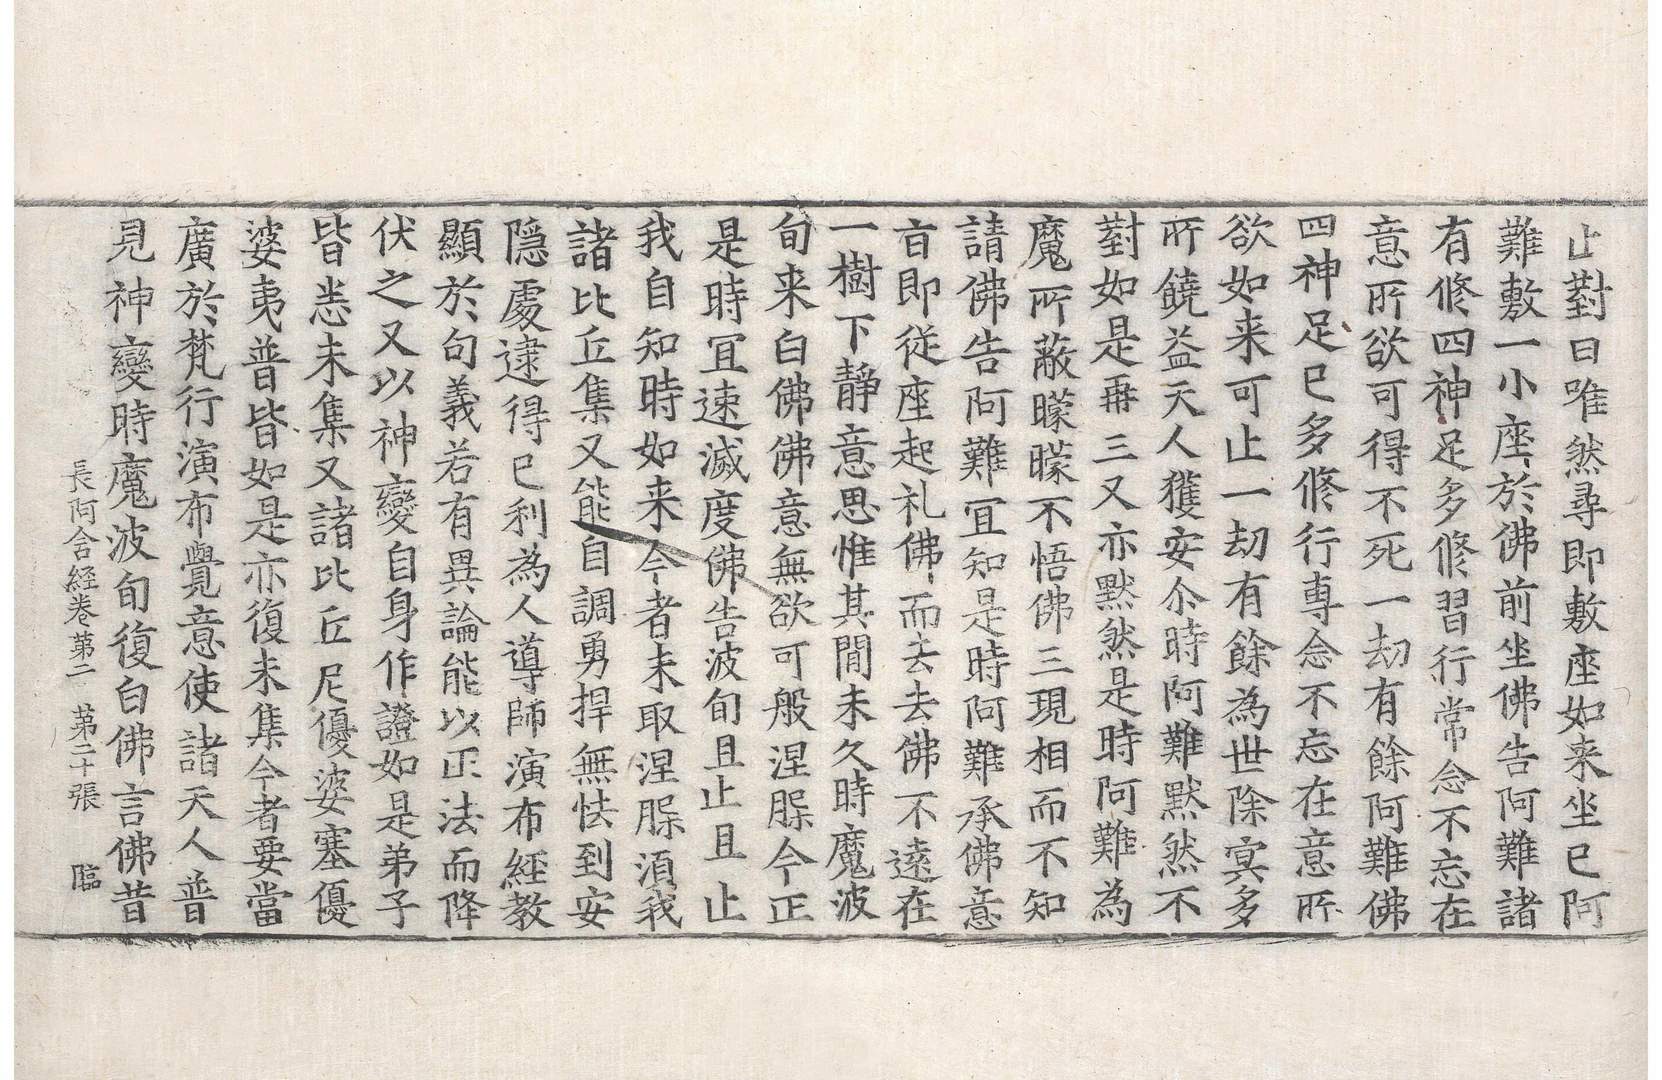 止對曰唯然尋即敷座如来坐已阿
難敷一小座於佛前坐佛告阿難諸
有修四神足多修習行常念不忘在
意所欲可得不死一劫有餘阿難佛
四神足已多修行專念不忘在意所
欲如来可止一劫有餘為世除冥多
所饒益天人獲安尒時阿難默然不
對如是再三又亦默然是時阿難為
魔所蔽矇矇不悟佛三現相而不知
請佛告阿難冝知是時阿難承佛意
㫖即從座起礼佛而去去佛不遠在
一樹下靜意思惟其間未久時魔波
旬来白佛佛意無欲可般涅槃今正
是時冝速滅度佛告波旬且止且止
我自知時如来今者未取涅槃湏我
諸比丘集又能自調勇捍無怯到安
隠處逮得已利為人導師演布經教
顯於句義若有異論能以正法而降
伏之又以神變自身作證如是弟子
皆悉未集又諸比丘尼優婆塞優
婆夷普皆如是亦復未集今者要當
廣於梵行演布覺意使諸天人普
見神變時魔波旬復白佛言佛昔
長阿含経卷第二 第二十張 臨